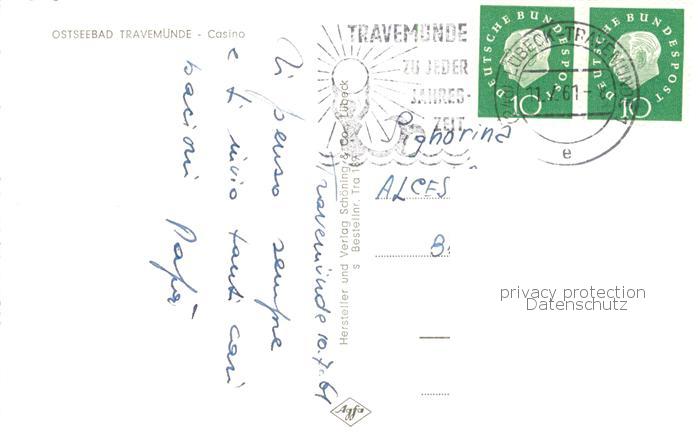 OSTSEEBAD TRAVEMÜNDE - Casino
Travemünde 10.7.61
Ti penso sempre
e ti invio tanti cari
bacioni Papà
Hersteller und Verlag Schöning & Co., Lübeck
s Bestellnr. Tra
Agfa
TRAVEMÜNDE
ZU JEDER
JAHRES-
ZEIT
LÜBECK-TRAVEMÜNDE
61
e
DEUTSCHE BUNDESPOST
10
DEUTSCHE BUNDESPOST
10
Signorina
ALCES
B
privacy protection
Datenschutz